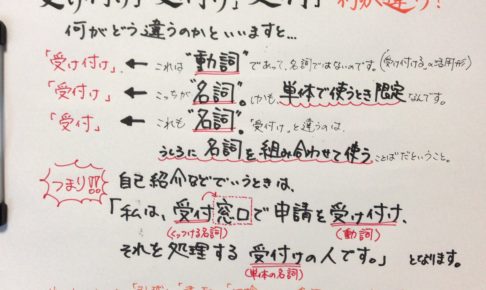 何が違う?
何がどう違うのかといいますと…
「受け付け」 ← これは"動詞"であって、名詞ではないのです。(「受け付ける」の活用形)
「受付け」 ← こっちが"名詞"。しかも、単体で使うとき限定なんです。
「受付」 ← これも"名詞"。「受付け」と違うのは、
うしろに名詞を組み合わせて使うことばだということ。
つまり!! 自己紹介などでいうときは、
「私は、受付窓口で申請を受け付け、
(くっつける名詞) (動詞)
それを処理する受付けの人です。」となります。
(単体の名詞)